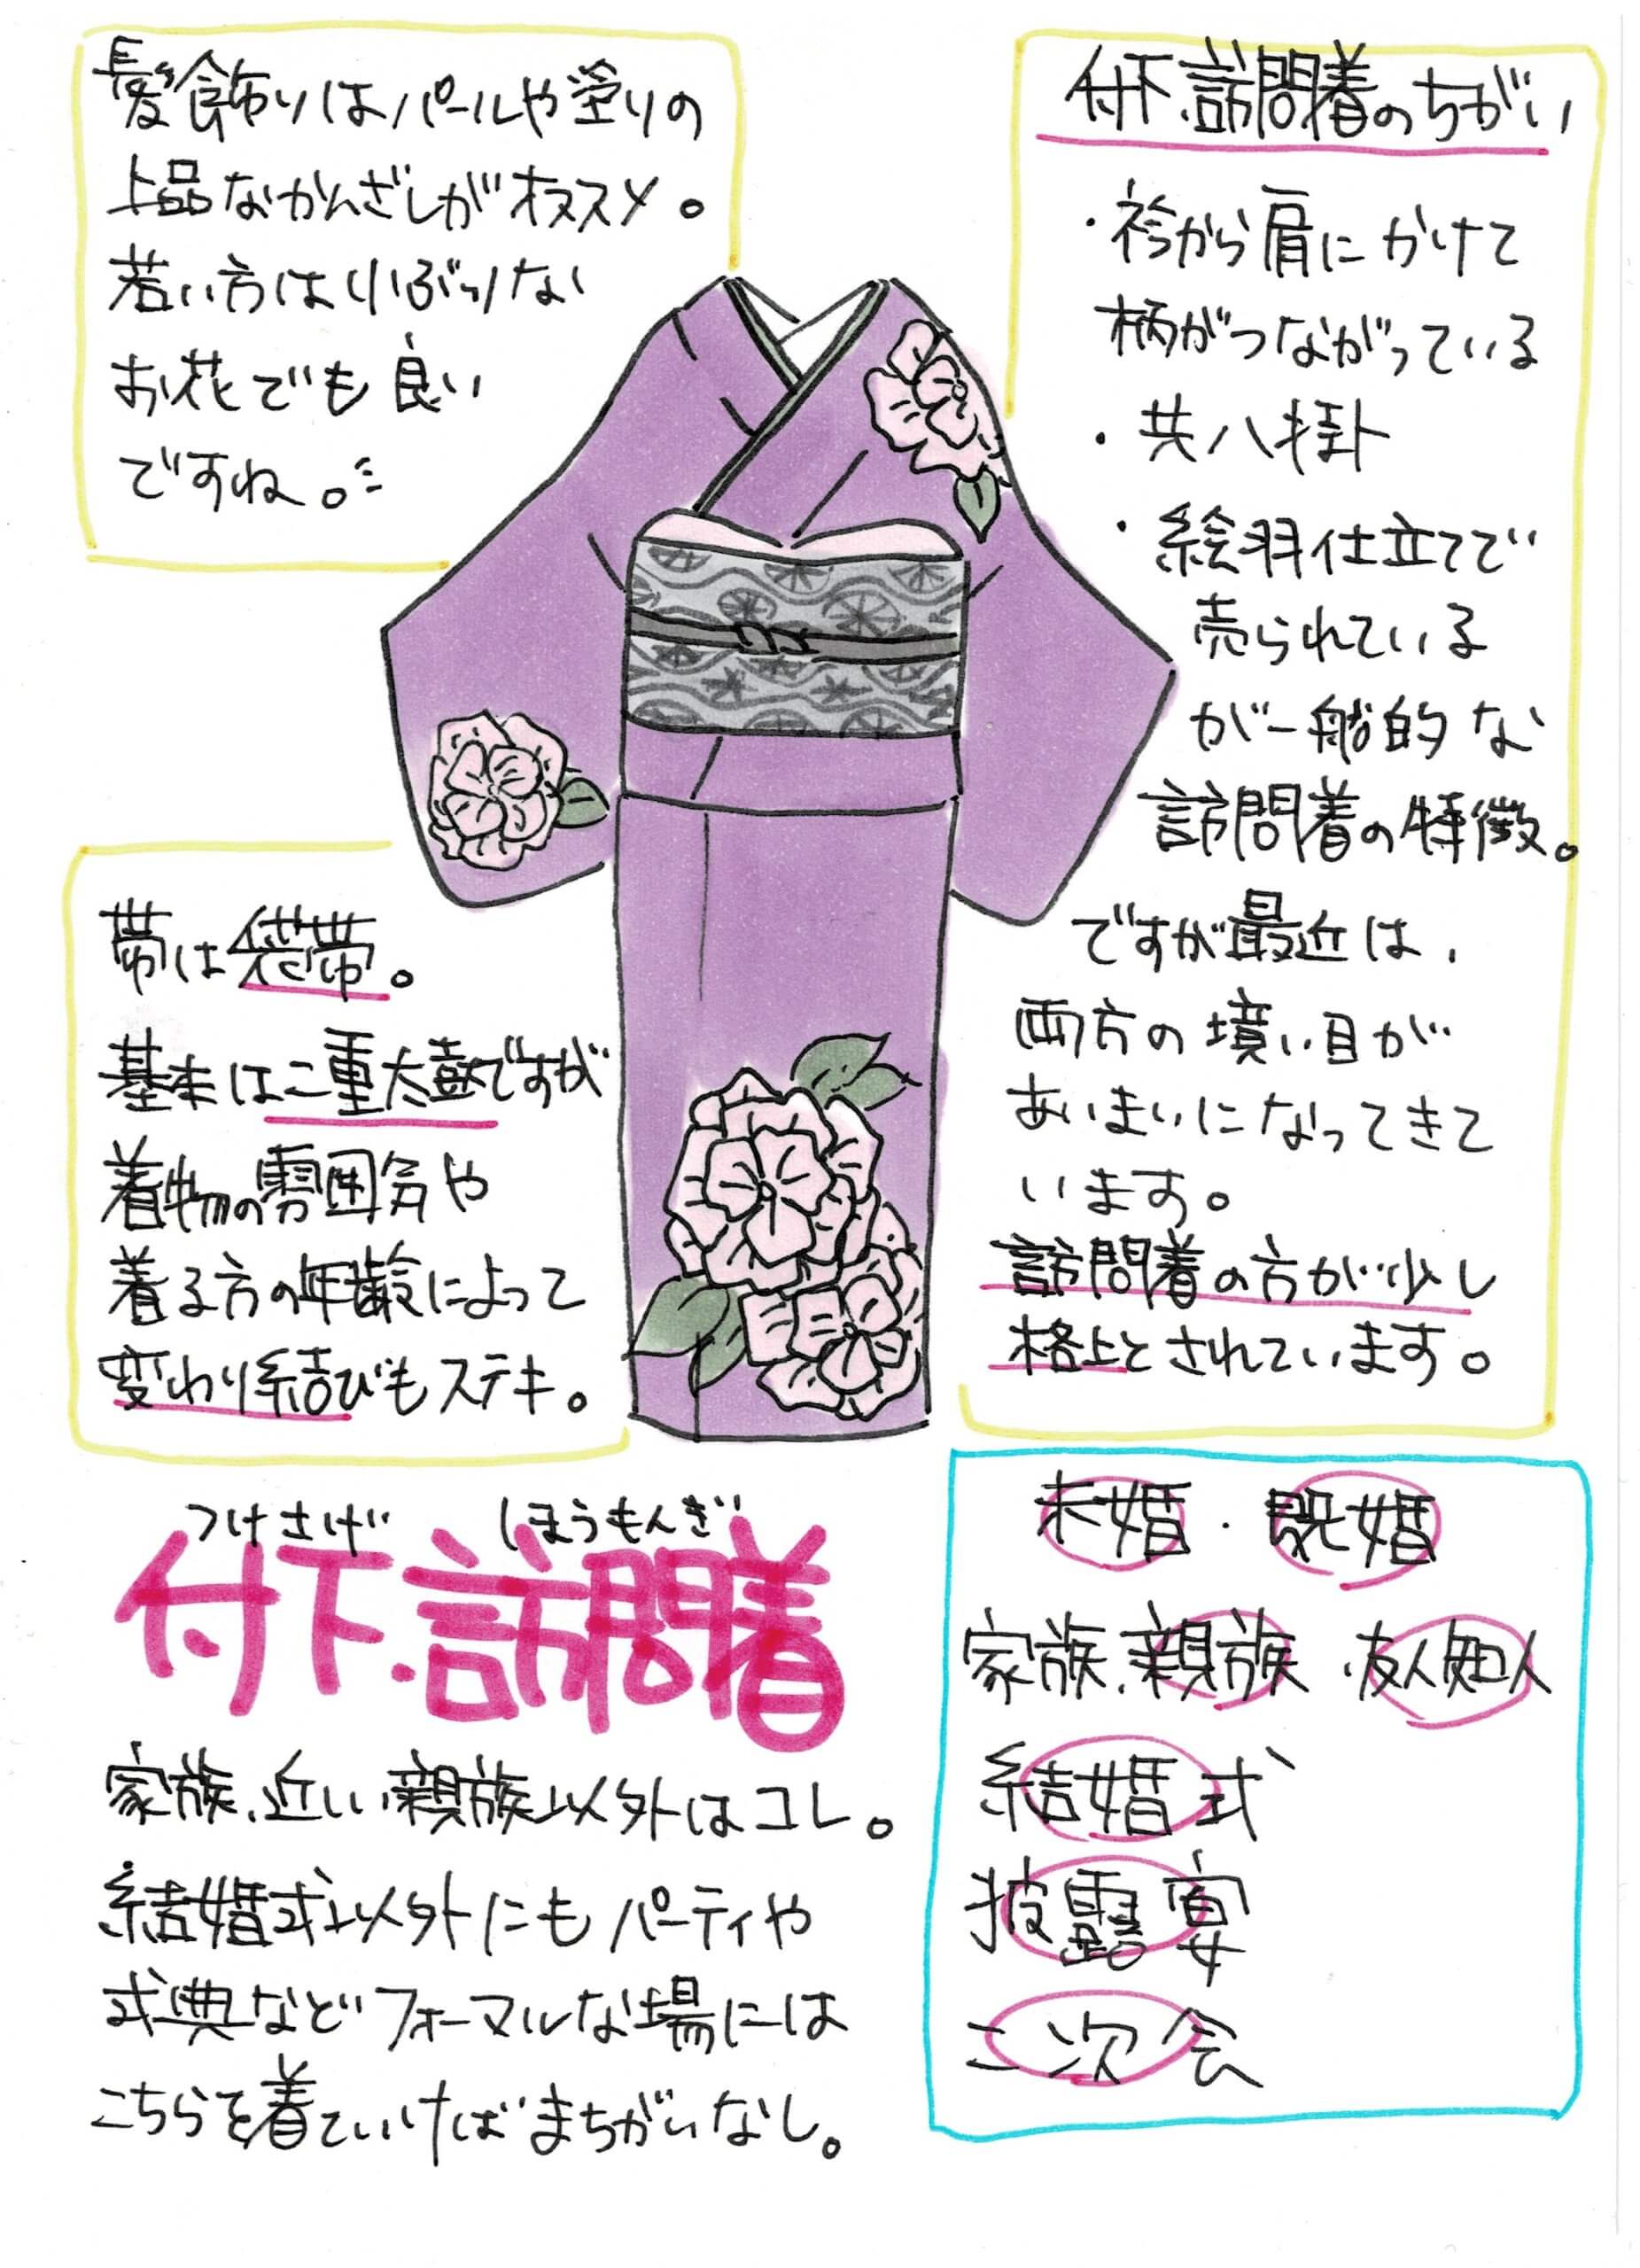 髪飾りはパールや塗りの
上品なかんざしがオススメ。
若い方は小ぶりな
お花でも良い
ですね。
付下.訪問着のちがい
・衿から肩にかけて
柄がつながっている
・共八掛
・絵羽仕立てで
売られている
が一般的な
訪問着の特徴。
ですが最近は、
両方の境い目が
あいまいになってきて
います。
訪問着の方が少し
格上とされています。
帯は袋帯。
基本は二重太鼓ですが
着物の雰囲気や
着る方の年齢によって
変わり結びもステキ。
つけさげ ほうもんぎ
付下.訪問着
家族、近しい親族以外はコレ。
結婚式以外にもパーティや
式典などフォーマルな場には
こちらを着ていけばまちがいなし。
未婚・既婚
家族.親族.友人知人
結婚式
披露宴
二次会